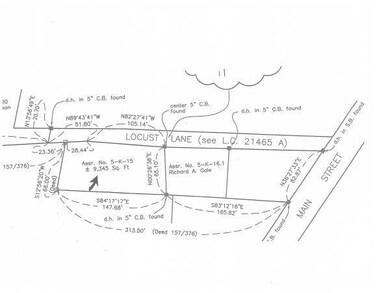 N12°56'49"E
20.70'
d.h. in 5" C.B. found
N89°43'41"W
51.80'
N82°27'41"W
105.14'
center 5" C.B.
found
d.h. in 5" C.B. found
d.h. in S.B. found
LOCUST LANE (see L.C. 21465 A)
23.36'
28.44'
157/376)
S12°56'20"W
68.00'
(Deed)
Assr. No. 5-K-15
± 9,345 Sq. Ft
N00°26'38"E
65.10'
Assr. No. 5-K-16.1
Richard A. Gale
N38°27'33"E
82.87'
MAIN STREET
S84°17'17"E
147.68'
d.h. in 5" C.B. found
S83°12'16"E
165.82'
313.50' (Deed 157/376)
C.B. found